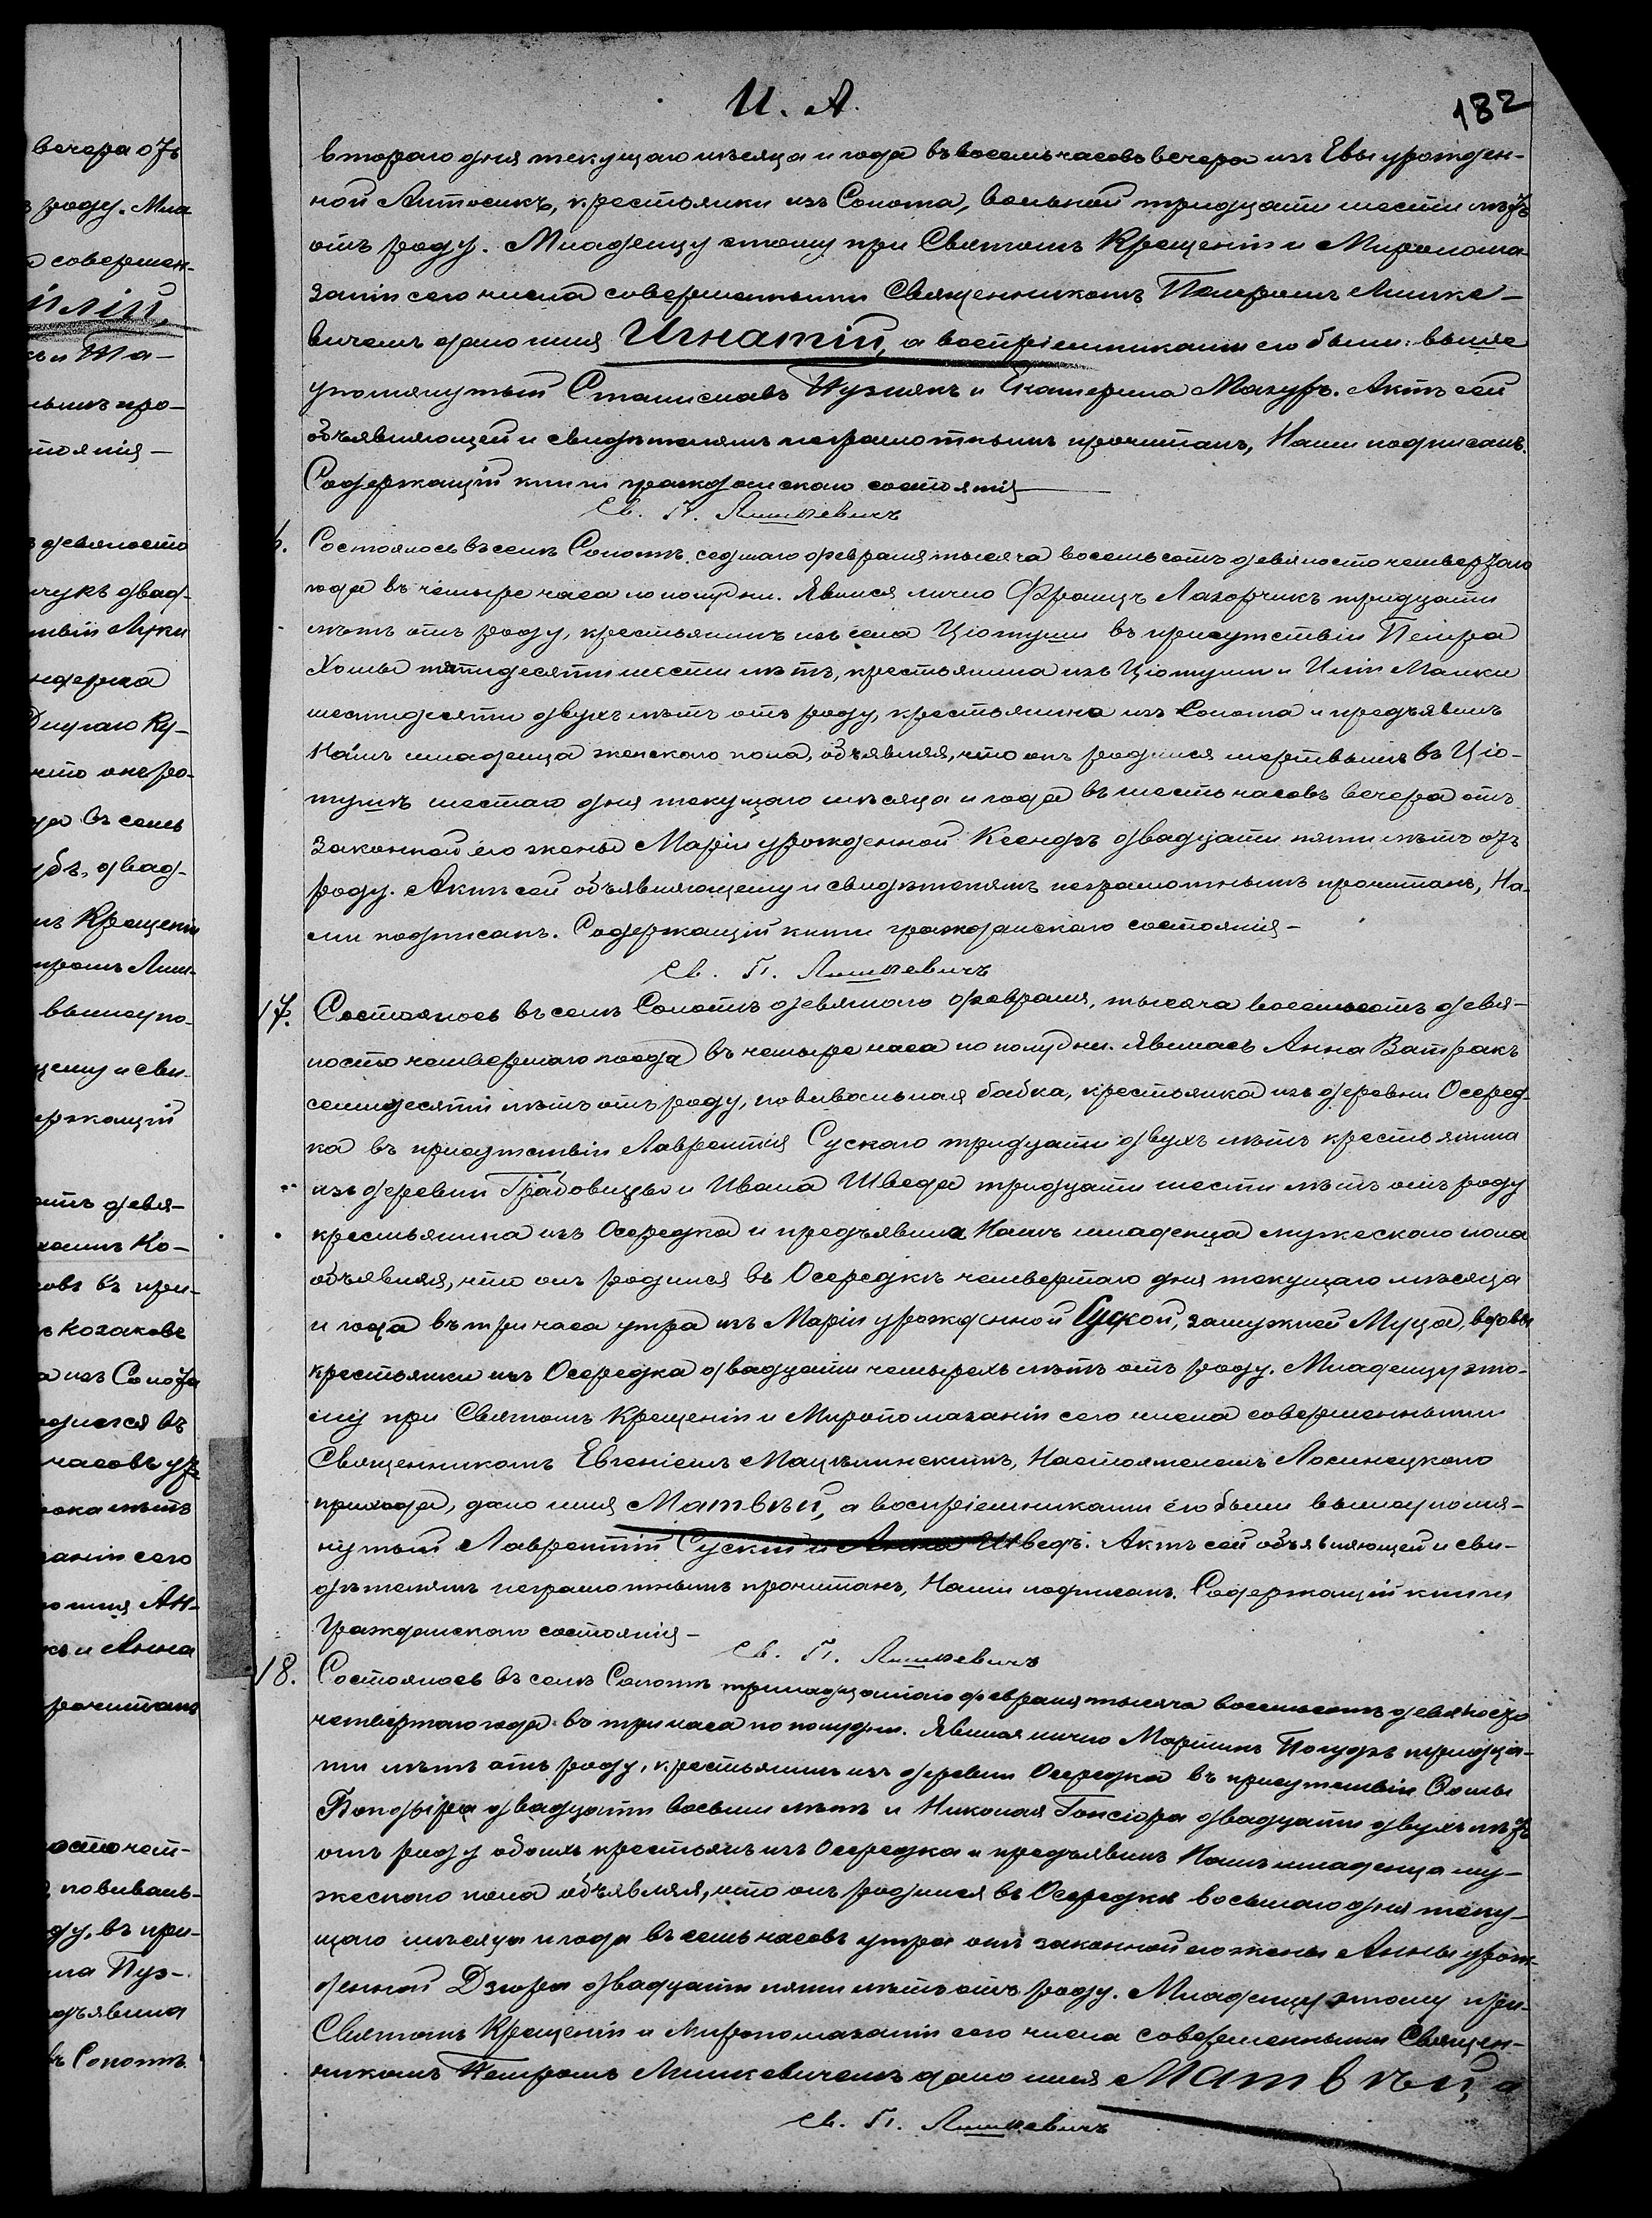 И. А.
182
втораго дня текущаго мѣсяца и года въ восемь часовъ вечера изъ Евы урожден-
ной Антосикъ, крестьянки изъ Сопота, вольной тридцати шести лѣтъ
отъ роду. Младенцу этому при Святомъ Крещеніи и Миропома-
заніи сего числа совершенными Священникомъ Петромъ Лишке-
вичемъ дано имя Игнатій, а воспріемниками его были: выше
упомянутый Станиславъ Пузнякъ и Екатерина Мазуръ. Актъ сей
объявляющей и свидѣтелямъ неграмотнымъ прочитанъ, Нами подписанъ.
Содержащій книги гражданскаго состоянія —
Св. П. Лишкевичъ
6. Состоялось въ селѣ Сопотъ седьмаго февраля тысяча восемьсотъ девяносто четвертаго
года въ четыре часа по полудни. Явился лично Францъ Лазорчикъ тридцати
лѣтъ отъ роду, крестьянинъ изъ села Ціотуши въ присутствіи Петра
Хомы пятидесяти шести лѣтъ, крестьянина изъ Ціотуши и Иліи Малки
шестидесяти двухъ лѣтъ отъ роду, крестьянина изъ Сопота и предъявилъ
Намъ младенца женскаго пола, объявляя, что онъ родился мертвымъ въ Ціо-
тушѣ шестаго дня текущаго мѣсяца и года въ шесть часовъ вечера отъ
законной его жены Маріи урожденной Ксендзъ двадцати пяти лѣтъ отъ
роду. Актъ сей объявляющему и свидѣтелямъ неграмотнымъ прочитанъ, На-
ми подписанъ. Содержащій книги гражданскаго состоянія —
Св. П. Лишкевичъ
17. Состоялось въ селѣ Сопотъ девятаго февраля, тысяча восемьсотъ девя-
носто четвертаго года въ четыре часа по полудни. Явилась Анна Ватракъ
семидесяти лѣтъ отъ роду, повивальная бабка, крестьянка изъ деревни Осеред-
ка въ присутствіи Лаврентія Сускаго тридцати двухъ лѣтъ крестьянина
изъ деревни Грабовицы и Ивана Шведа тридцати шести лѣтъ отъ роду
крестьянина изъ Осередка и предъявила Намъ младенца мужескаго пола
объявляя, что онъ родился въ Осередкѣ четвертаго дня текущаго мѣсяца
и года въ три часа утра изъ Маріи урожденной Суской, замужней Муца, вдовы
крестьянки изъ Осередка двадцати четырехъ лѣтъ отъ роду. Младенцу это-
му при Святомъ Крещеніи и Миропомазаніи сего числа совершенными
Священникомъ Евгеніемъ Мацѣлинскимъ, Настоятелемъ Лосинецкаго
прихода, дано имя Матвѣй, а воспріемниками его были вышеупомя-
нутый Лаврентій Сускій и Анна Шведъ. Актъ сей объявляющей и сви-
дѣтелямъ неграмотнымъ прочитанъ, Нами подписанъ. Содержащій книги
Гражданскаго состоянія —
Св. П. Лишкевичъ
18. Состоялось въ селѣ Сопотъ тринадцатаго февраля тысяча восемьсотъ девяносто
четвертаго года въ три часа по полудни. Явился лично Мартинъ тридца-
ти лѣтъ отъ роду, крестьянинъ изъ деревни Осередка въ присутствіи Ѳомы
двадцати восьми лѣтъ и Николая Гонсіора двадцати двухъ лѣтъ
отъ роду обоихъ крестьянъ изъ Осередка и предъявилъ Намъ младенца му-
жескаго пола объявляя, что онъ родился въ Осередкѣ восьмаго дня теку-
щаго мѣсяца и года въ семь часовъ утра отъ законной его жены Анны урож-
денной Дзюра двадцати пяти лѣтъ отъ роду. Младенцу этому при
Святомъ Крещеніи и Миропомазаніи сего числа совершенными Священ-
никомъ Петромъ Лишкевичемъ дано имя Матвѣй, а
Св. П. Лишкевичъ